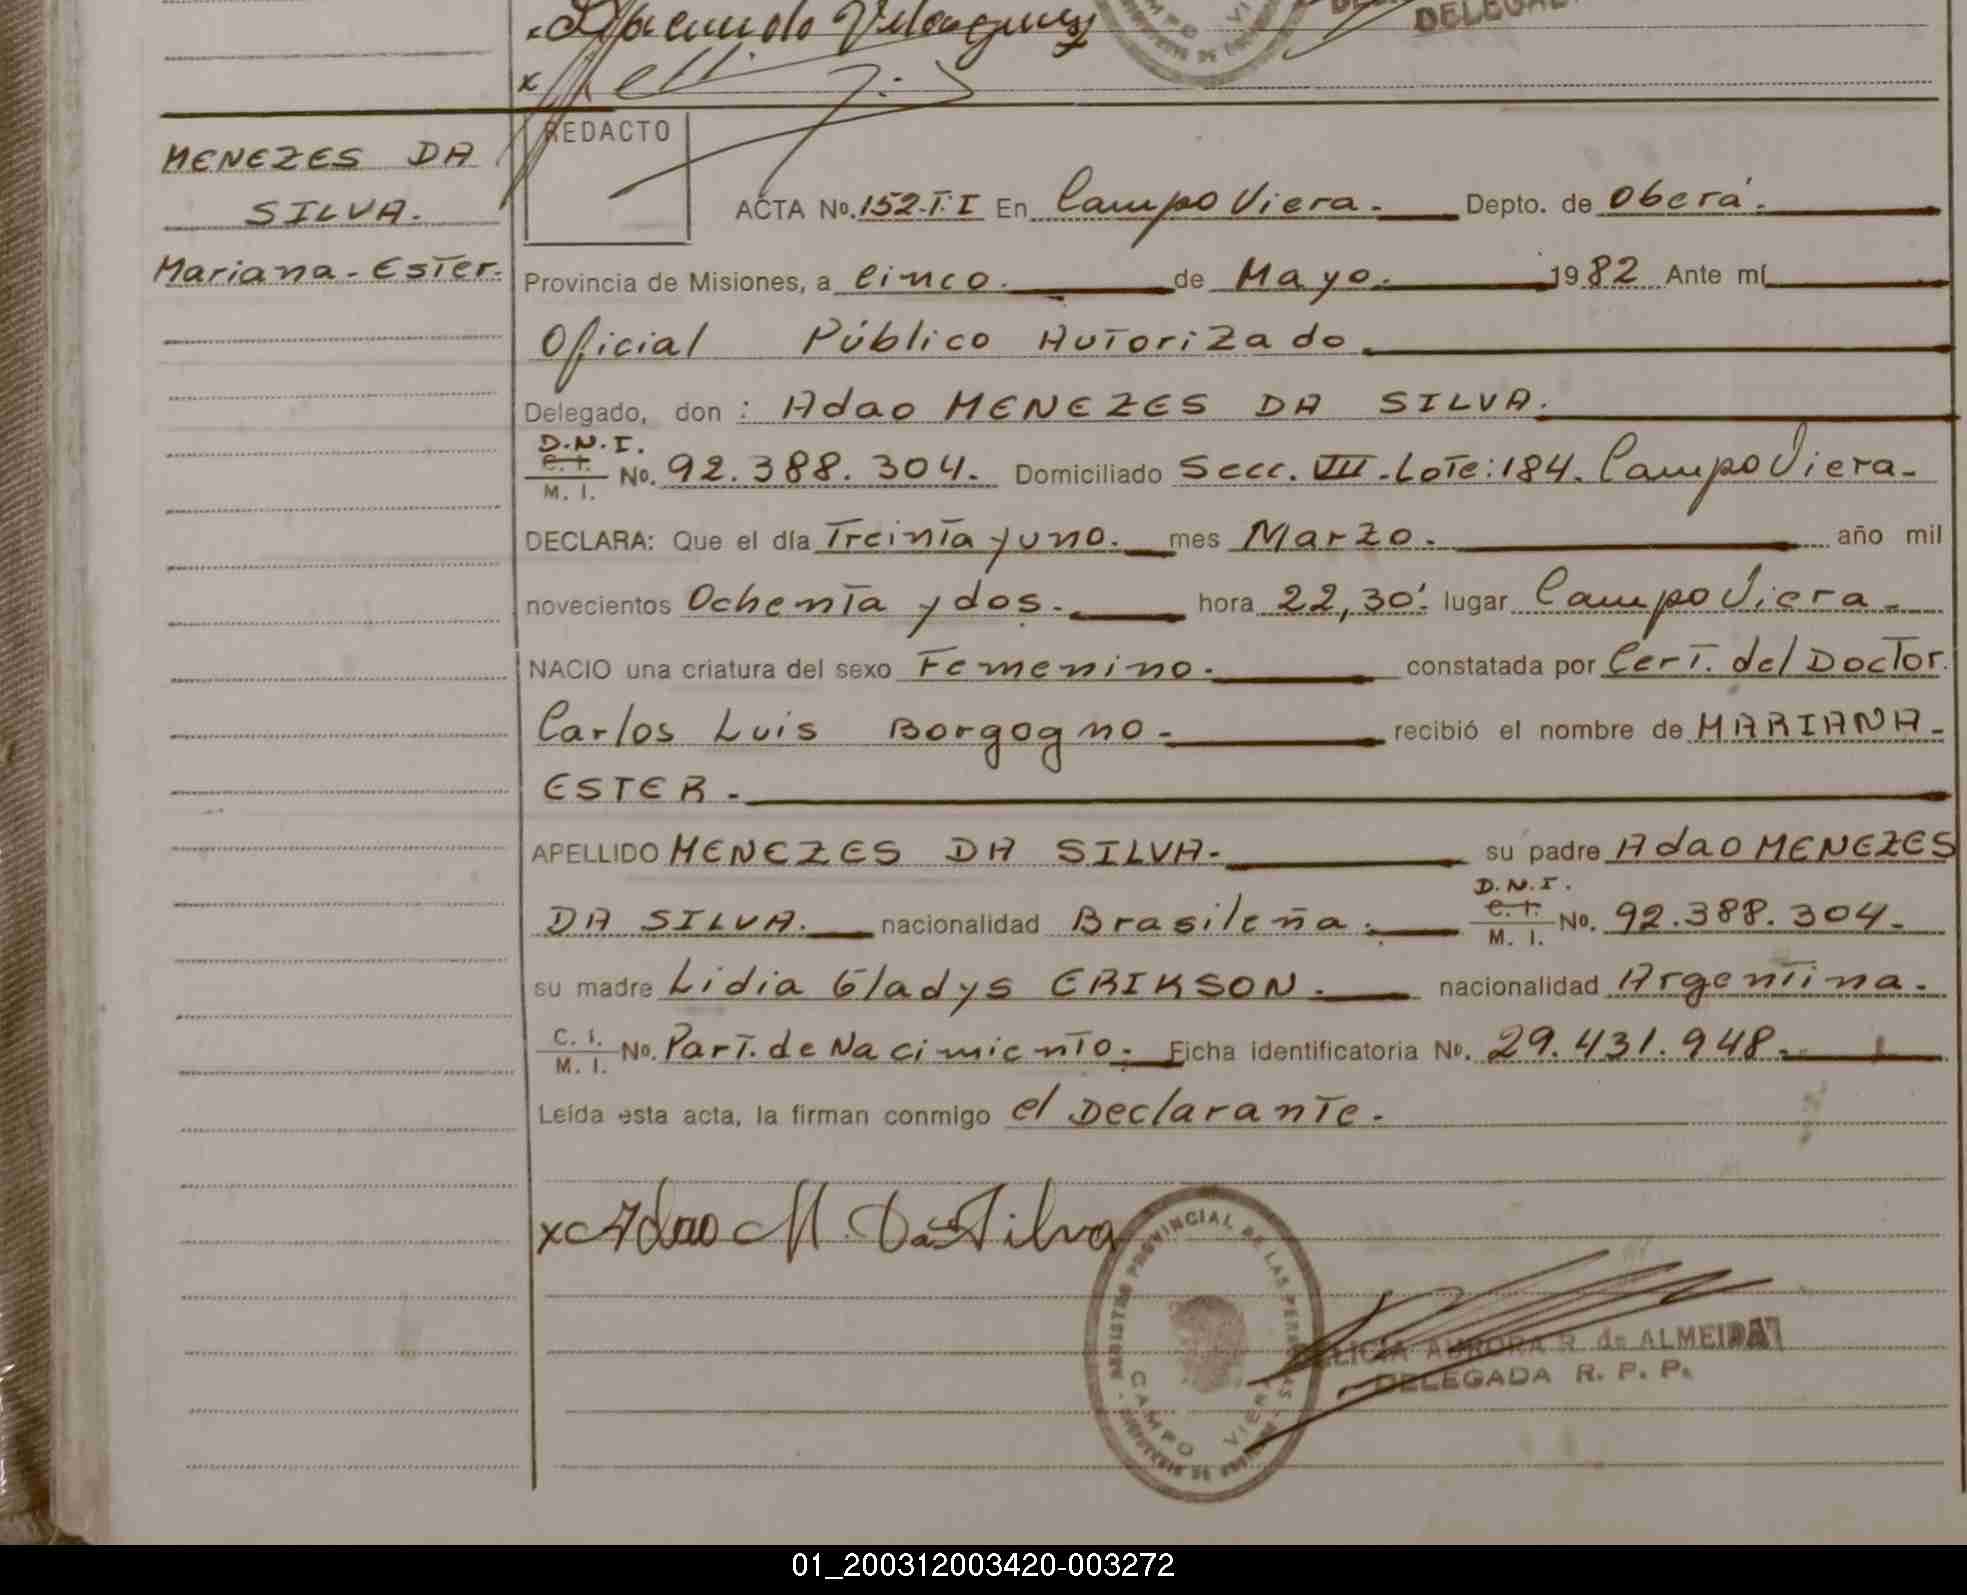 Velazquez
DELEGAD
REDACTO
MENEZES DA
SILVA.
Mariana-Ester.
ACTA No. 152-T.I En Campo Viera.- Depto. de Oberá.-
Provincia de Misiones, a cinco. de Mayo. 1982 Ante mí
Oficial Público Autorizado
Delegado, don : Adao MENEZES DA SILVA.
D.N.I.
C.I. M. I. No. 92.388.304. Domiciliado Secc. VIII-Lote:184. Campo Viera-
DECLARA: Que el día Treinta y uno. mes Marzo. año mil
novecientos Ochenta y dos. hora 22,30'. lugar Campo Viera-
NACIO una criatura del sexo Femenino. constatada por Cert. del Doctor
Carlos Luis Borgogno- recibió el nombre de MARIANA-
ESTER-
APELLIDO MENEZES DA SILVA- su padre Adao MENEZES
D.N.I.
DA SILVA. nacionalidad Brasileña. C.I. M. I. No. 92.388.304-
su madre Lidia Gladys ERIKSON. nacionalidad Argentina.
C. I. M. I. No. Part. de Nacimiento. Ficha identificatoria No. 29.431.948-
Leída esta acta, la firman conmigo el Declarante-
x Adao M. Da Silva
REGISTRO PROVINCIAL DE LAS PERSONAS
CAMPO VIERA
AURORA R. de ALMEIDA
DELEGADA R. P. P.
01_200312003420-003272